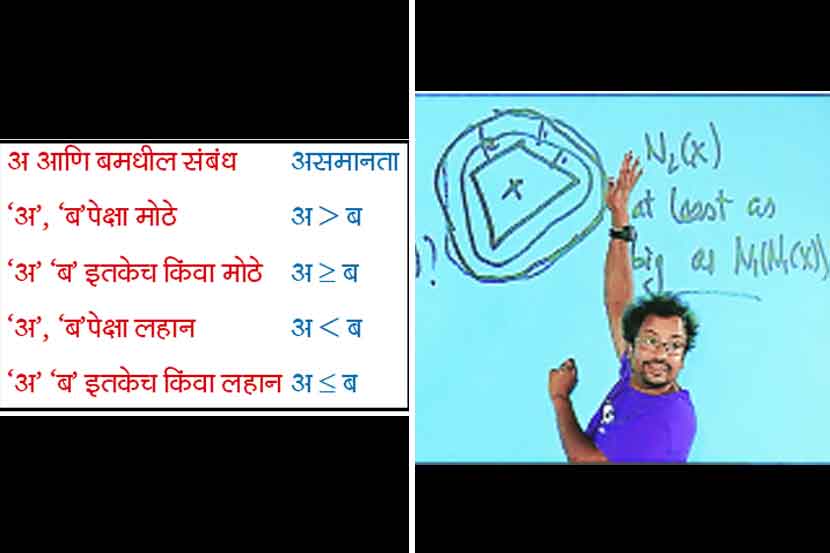 अ आणि बमधील संबंध असमानता
‘अ’, ‘ब’पेक्षा मोठे अ > ब
‘अ’ ‘ब’ इतकेच किंवा मोठे अ ≥ ब
‘अ’, ‘ब’पेक्षा लहान अ < ब
‘अ’ ‘ब’ इतकेच किंवा लहान अ ≤ ब
X
N₂(x)
at least as
)? big as N₁(N₁(x))